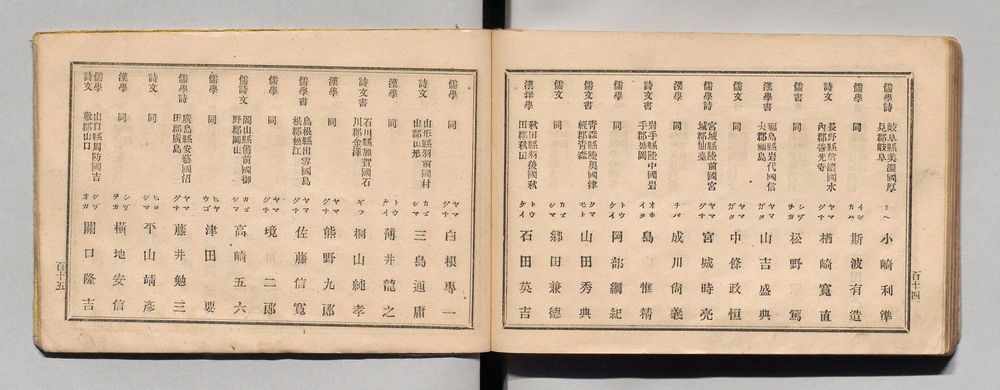 儒學詩 岐阜縣美濃國厚見郡岐阜 小崎利準
儒學 同 イシカハ 斯波有造
詩文 長野縣信濃國水內郡善光寺 ヤマグチ 楢崎寬直
儒書 同 シヅチ 松野篤
漢學 福島縣岩代國信夫郡福島 ヤマガタ 山吉盛典
詩文 同 ヤマガタ 中條政恒
儒學文 宮城縣陸前國宮城郡仙臺 ヤマグチ 宮城時亮
漢學 同 チバ 成川尙義
詩文 岩手縣陸中國岩手郡盛岡 オホイタ 島惟精
儒學 同 トウケイ 岡部綱紀
儒文書 青森縣陸奧國津輕郡青森 クマモト 山田秀典
儒文 同 シマ 鄉田兼德
漢洋學 秋田縣羽後國秋田郡秋田 トウケイ 石田英吉
百十四
儒學 同 ヤマグチ 白根專一
詩文 山形縣羽前國村山郡山形 カゴシマ 三島通庸
漢學 同 トウケイ 薄井龍之
詩文書 石川縣加賀國石川郡金澤 ギフ 桐山純孝
漢學 同 ヤマグチ 熊野九郞
儒學書 島根縣出雲國島根郡松江 ヤマグチ 佐藤信寬
儒學 同 ヤマグチ 境二郞
儒詩文 岡山縣備前國御野郡岡山 カゴシマ 高崎五六
儒學 同 ヤマウゴ 津田要
儒學詩 廣島縣安藝國沼田郡廣島 ヤマグチ 藤井勉三
詩文 同 ヒロシマ 平山靖彥
漢學 同 シヅチカ 橫地安信
儒學詩文 山口縣周防國吉敷郡山口 シヅオカ 關口隆吉
百十五